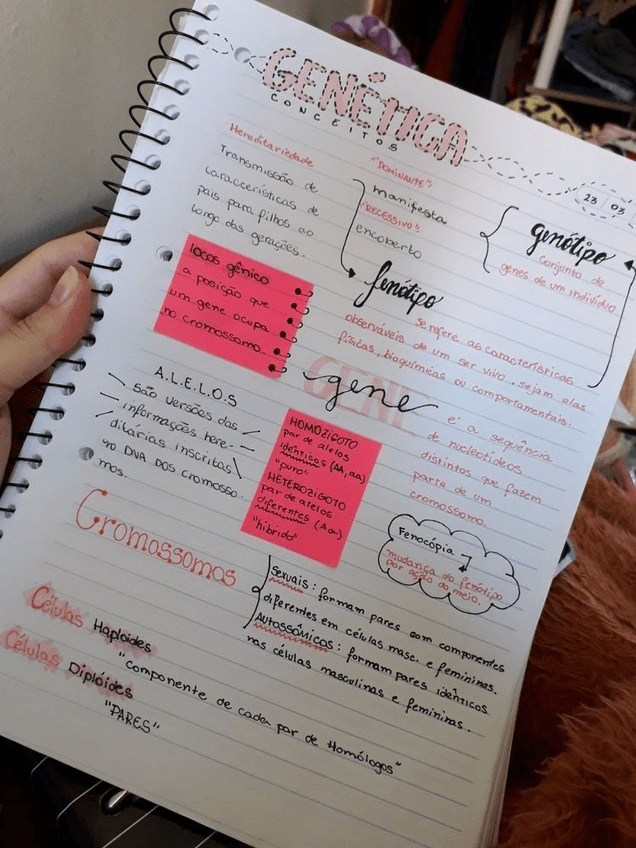 GENÉTICA
CONCEITOS
23 03
Hereditariedade
Transmissão de
características de
pais para filhos ao
longo das gerações.
"DOMINANTE":
manifesta
"RECESSIVO":
encoberto
genótipo
conjunto de
genes de um indivíduo
fenótipo
se refere as características
observáveis de um ser vivo, sejam elas
físicas, bioquímicas ou comportamentais.
locos gênico
a posição que
um gene ocupa
no cromossomo.
GENE
gene
é a sequência
de nucleotídeos
distintos que fazem
parte de um
cromossomo.
A.L.E.L.O.S
São versões das
informações here-
ditárias inscritas
no DNA DOS cromosso
mos.
HOMOZIGOTO
par de alelos
idênticos (AA, aa)
"puro"
HETEROZIGOTO
par de alelos
diferentes (Aa)
"híbrido"
Fenocópia
mudança do fenótipo
por ação do meio.
Cromossomos
Sexuais: formam pares com componentes
diferentes em células masc. e femininas.
Autossômicos: formam pares idênticos
nas células masculinas e femininas.
Células Haplóides
"Componente de cada par de Homólogos"
Células Diplóides
"PARES"